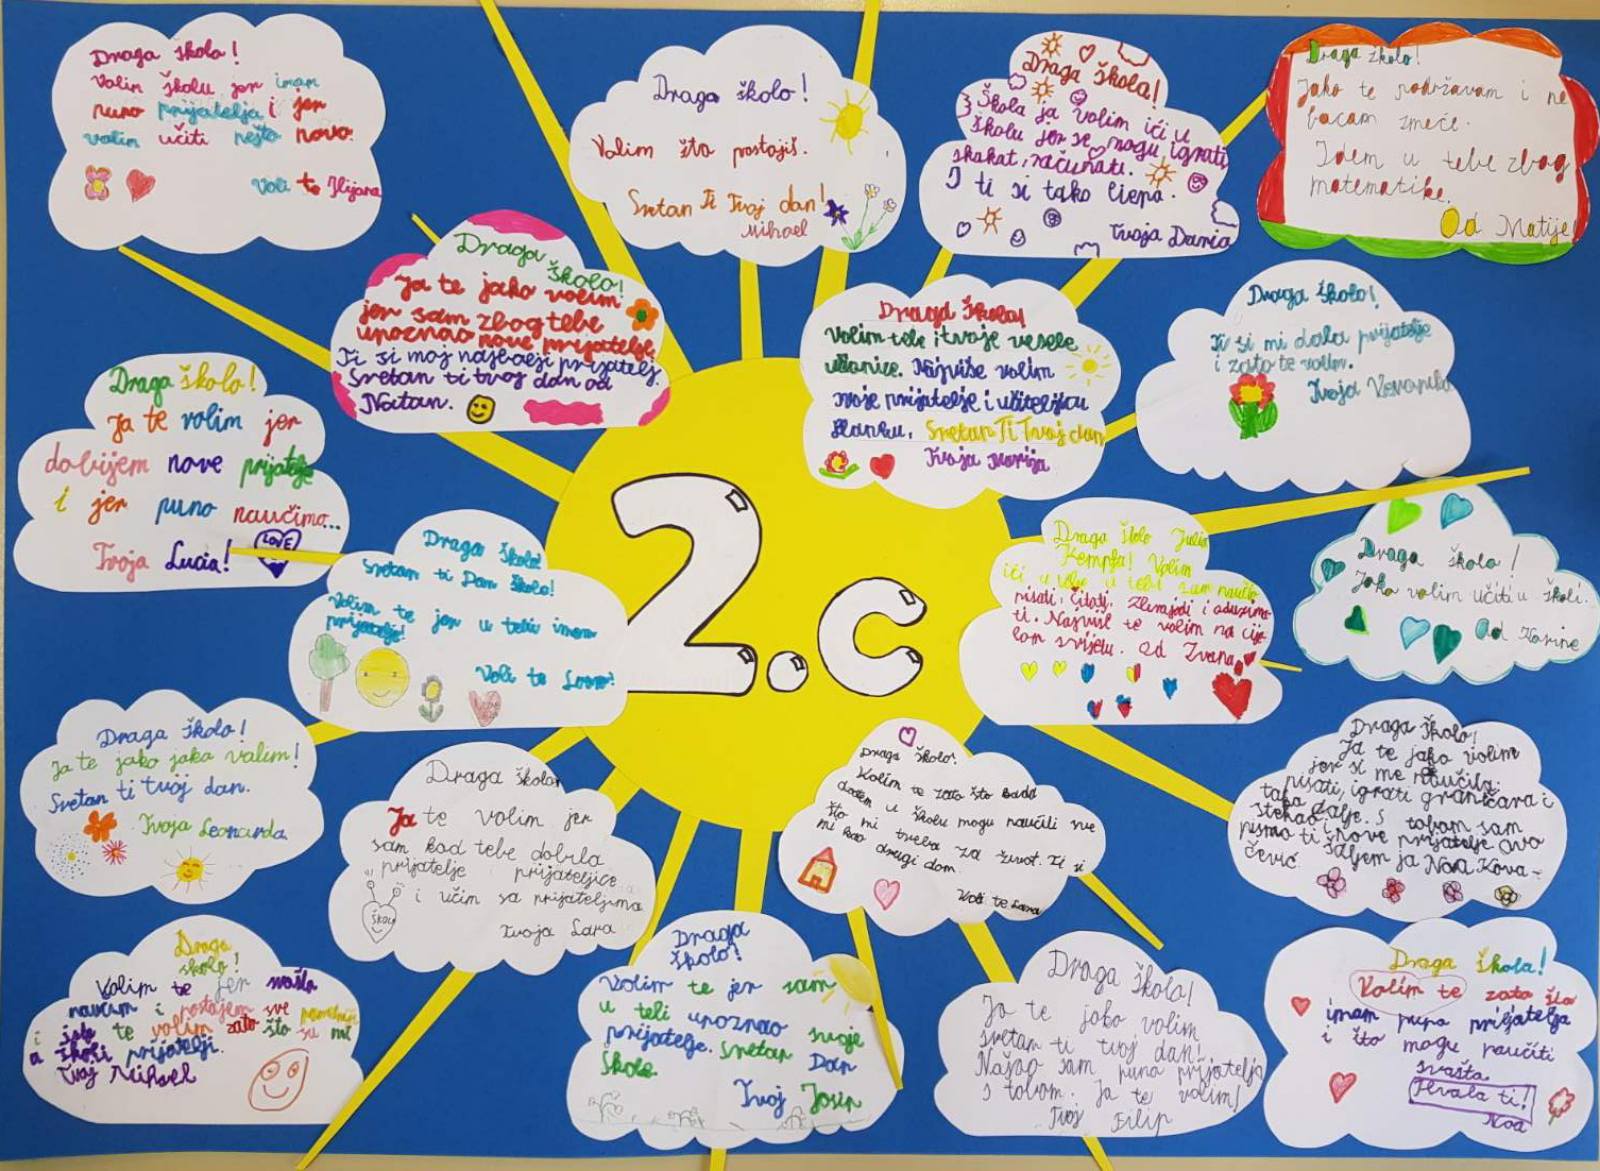 Draga škola!
Volim školu jer imam
puno prijatelja i jer
volim učiti nešto novo.
Voli te Ilijana
Draga školo!
Volim što postojiš.
Sretan Ti Tvoj dan!
Mihael
Draga škola!
Škola ja volim ići u
školu jer se mogu igrati
skakat, računati.
I ti si tako liepa.
Tvoja Daria
Draga školo!
Jako te podržavam i ne
bacam smeće.
Idem u tebe zbog
matematike.
Od Matije!
Draga školo!
Ja te jako volim
jer sam zbog tebe
upoznao nove prijatelje.
Ti si moj najbolji prijatelj.
Sretan ti tvoj dan od
Natan.
Draga škola!
Volim tebe i tvoje vesele
učionice. Najviše volim
moje prijatelje i učiteljicu
Blanku. Sretan Ti Tvoj dan
Tvoja Marija
Draga školo!
Ti si mi dala prijatelje
i zato te volim.
Tvoja
Draga školo!
Ja te volim jer
dobijem nove prijatelje
i jer puno naučimo...
Tvoja Lucia!
LOVE
Draga školo!
Sretan ti Dan školo!
Volim te jer u tebi imam
prijatelje!
Voli te
2.c
Draga školo Julija
Kempfa! Volim
ići u tebe u tebi sam naučila
pisati, čitati, zbrajati i oduzima-
ti. Najviše te volim na cije-
lom svijetu. Od Ivana.
Draga školo!
Jako volim učiti u školi.
Od Karine
Draga školo!
Ja te jako jako volim!
Sretan ti tvoj dan.
Tvoja Leonarda
Draga škola
Ja te volim jer
sam kod tebe dobila
prijatelje prijateljice
i učim sa prijateljima
ŠKOLA
Tvoja Lara
Draga školo!
Volim te zato što kada
dođem u školu mogu naučiti sve
što mi treba za život. Ti si
mi kao drugi dom.
Voli te Lana
Draga školo!
Ja te jako volim
jer si me naučila:
pisati, igrati graničara i
tako dalje. S tobom sam
stekao i nove prijatelje ovo
pismo ti šaljem ja Noa Kova-
čević
Draga
školo!
Volim te jer svašta
naučim i postajem sve pametniji
i isto te volim zato što su mi
u školi prijatelji.
Tvoj Mihael
Draga
školo!
Volim te jer sam
u tebi upoznao svoje
prijatelje. Sretan Dan
škole
Tvoj Josip
Draga škola!
Ja te jako volim
sretan ti tvoj dan!
Našao sam puno prijatelja
s tobom. Ja te volim!
Tvoj Filip
Draga škola!
Volim te zato što
imam puno prijatelja
i što mogu naučiti
svašta
Hvala ti!
Noa